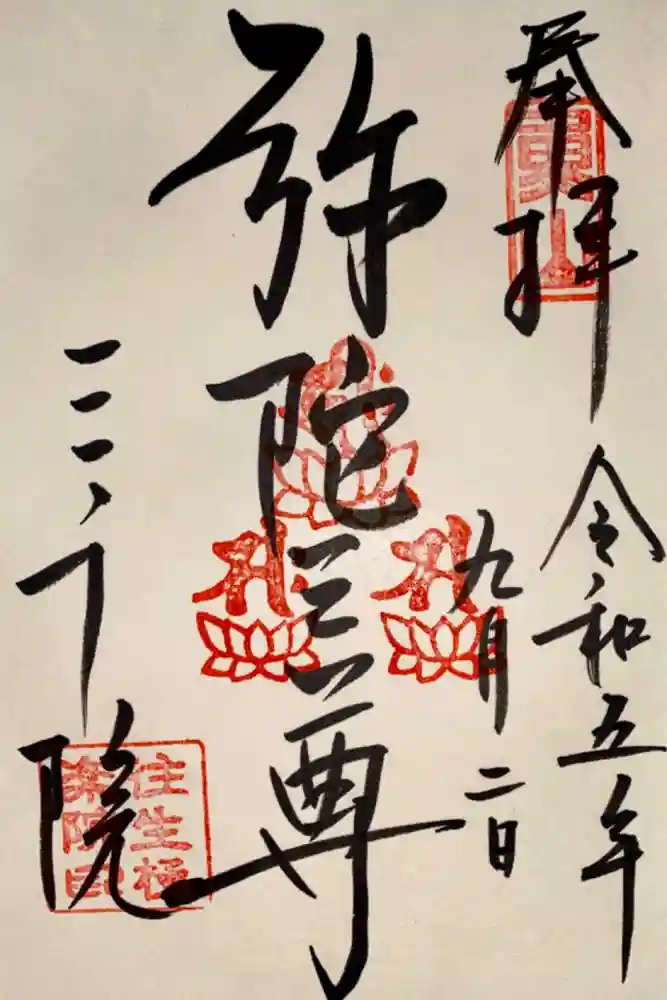 奉拝
魚山
令和五年
九月二日
弥陀三尊
三千院
往生極
楽院印